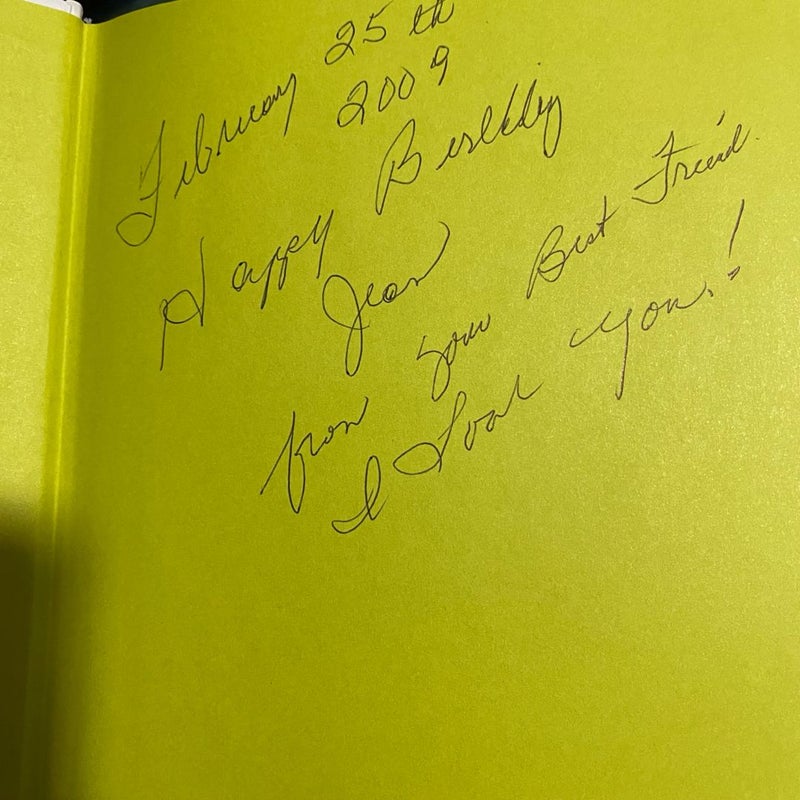 February 25th
2009
Happy Birthday
Jean
from your Best Friend.
I Love you.!